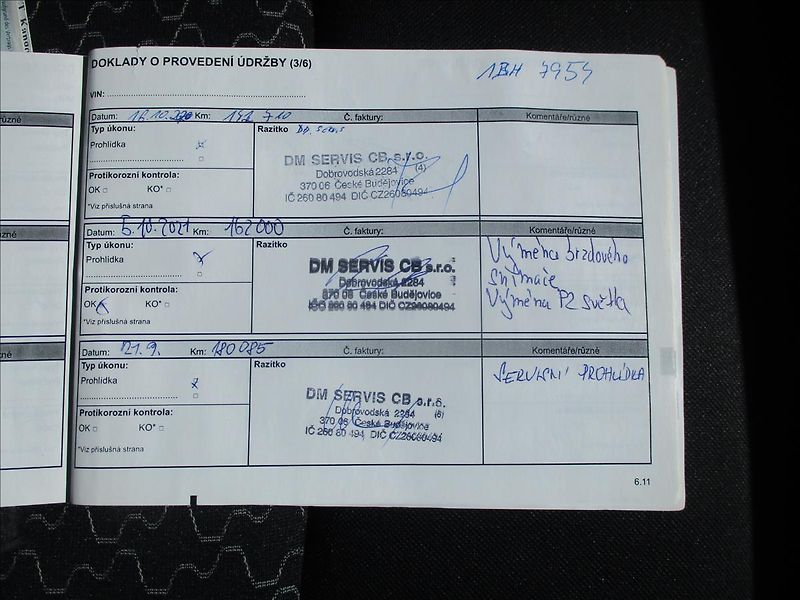 DOKLADY O PROVEDENÍ ÚDRŽBY (3/6)
1BH 7954
VIN:
Datum: Km: 710 Č. faktury: Komentáře/různé
Typ úkonu: Razítko
Prohlídka x
DM SERVIS CB s.r.o.
Dobrovodská 2284 (4)
370 06 České Budějovice
IČ 260 80 494 DIČ CZ26080494
Protikorozní kontrola:
OK KO*
*Viz příslušná strana
Datum: 5.10.2021 Km: 162000 Č. faktury: Komentáře/různé
Typ úkonu: Razítko
Prohlídka x
DM SERVIS CB s.r.o.
Dobrovodská 2284
370 06 České Budějovice
IČO 260 80 494 DIČ CZ26080494
Výměna brzdového
snímače
Výměna PZ světla
Protikorozní kontrola:
OK x KO*
*Viz příslušná strana
Datum: 21.9. Km: 180085 Č. faktury: Komentáře/různé
Typ úkonu: Razítko
Prohlídka x
DM SERVIS CB s.r.o.
Dobrovodská 2284 (6)
370 06 České Budějovice
IČ 260 80 494 DIČ CZ26080494
SERVISNÍ PROHLÍDKA
Protikorozní kontrola:
OK KO*
*Viz příslušná strana
6.11